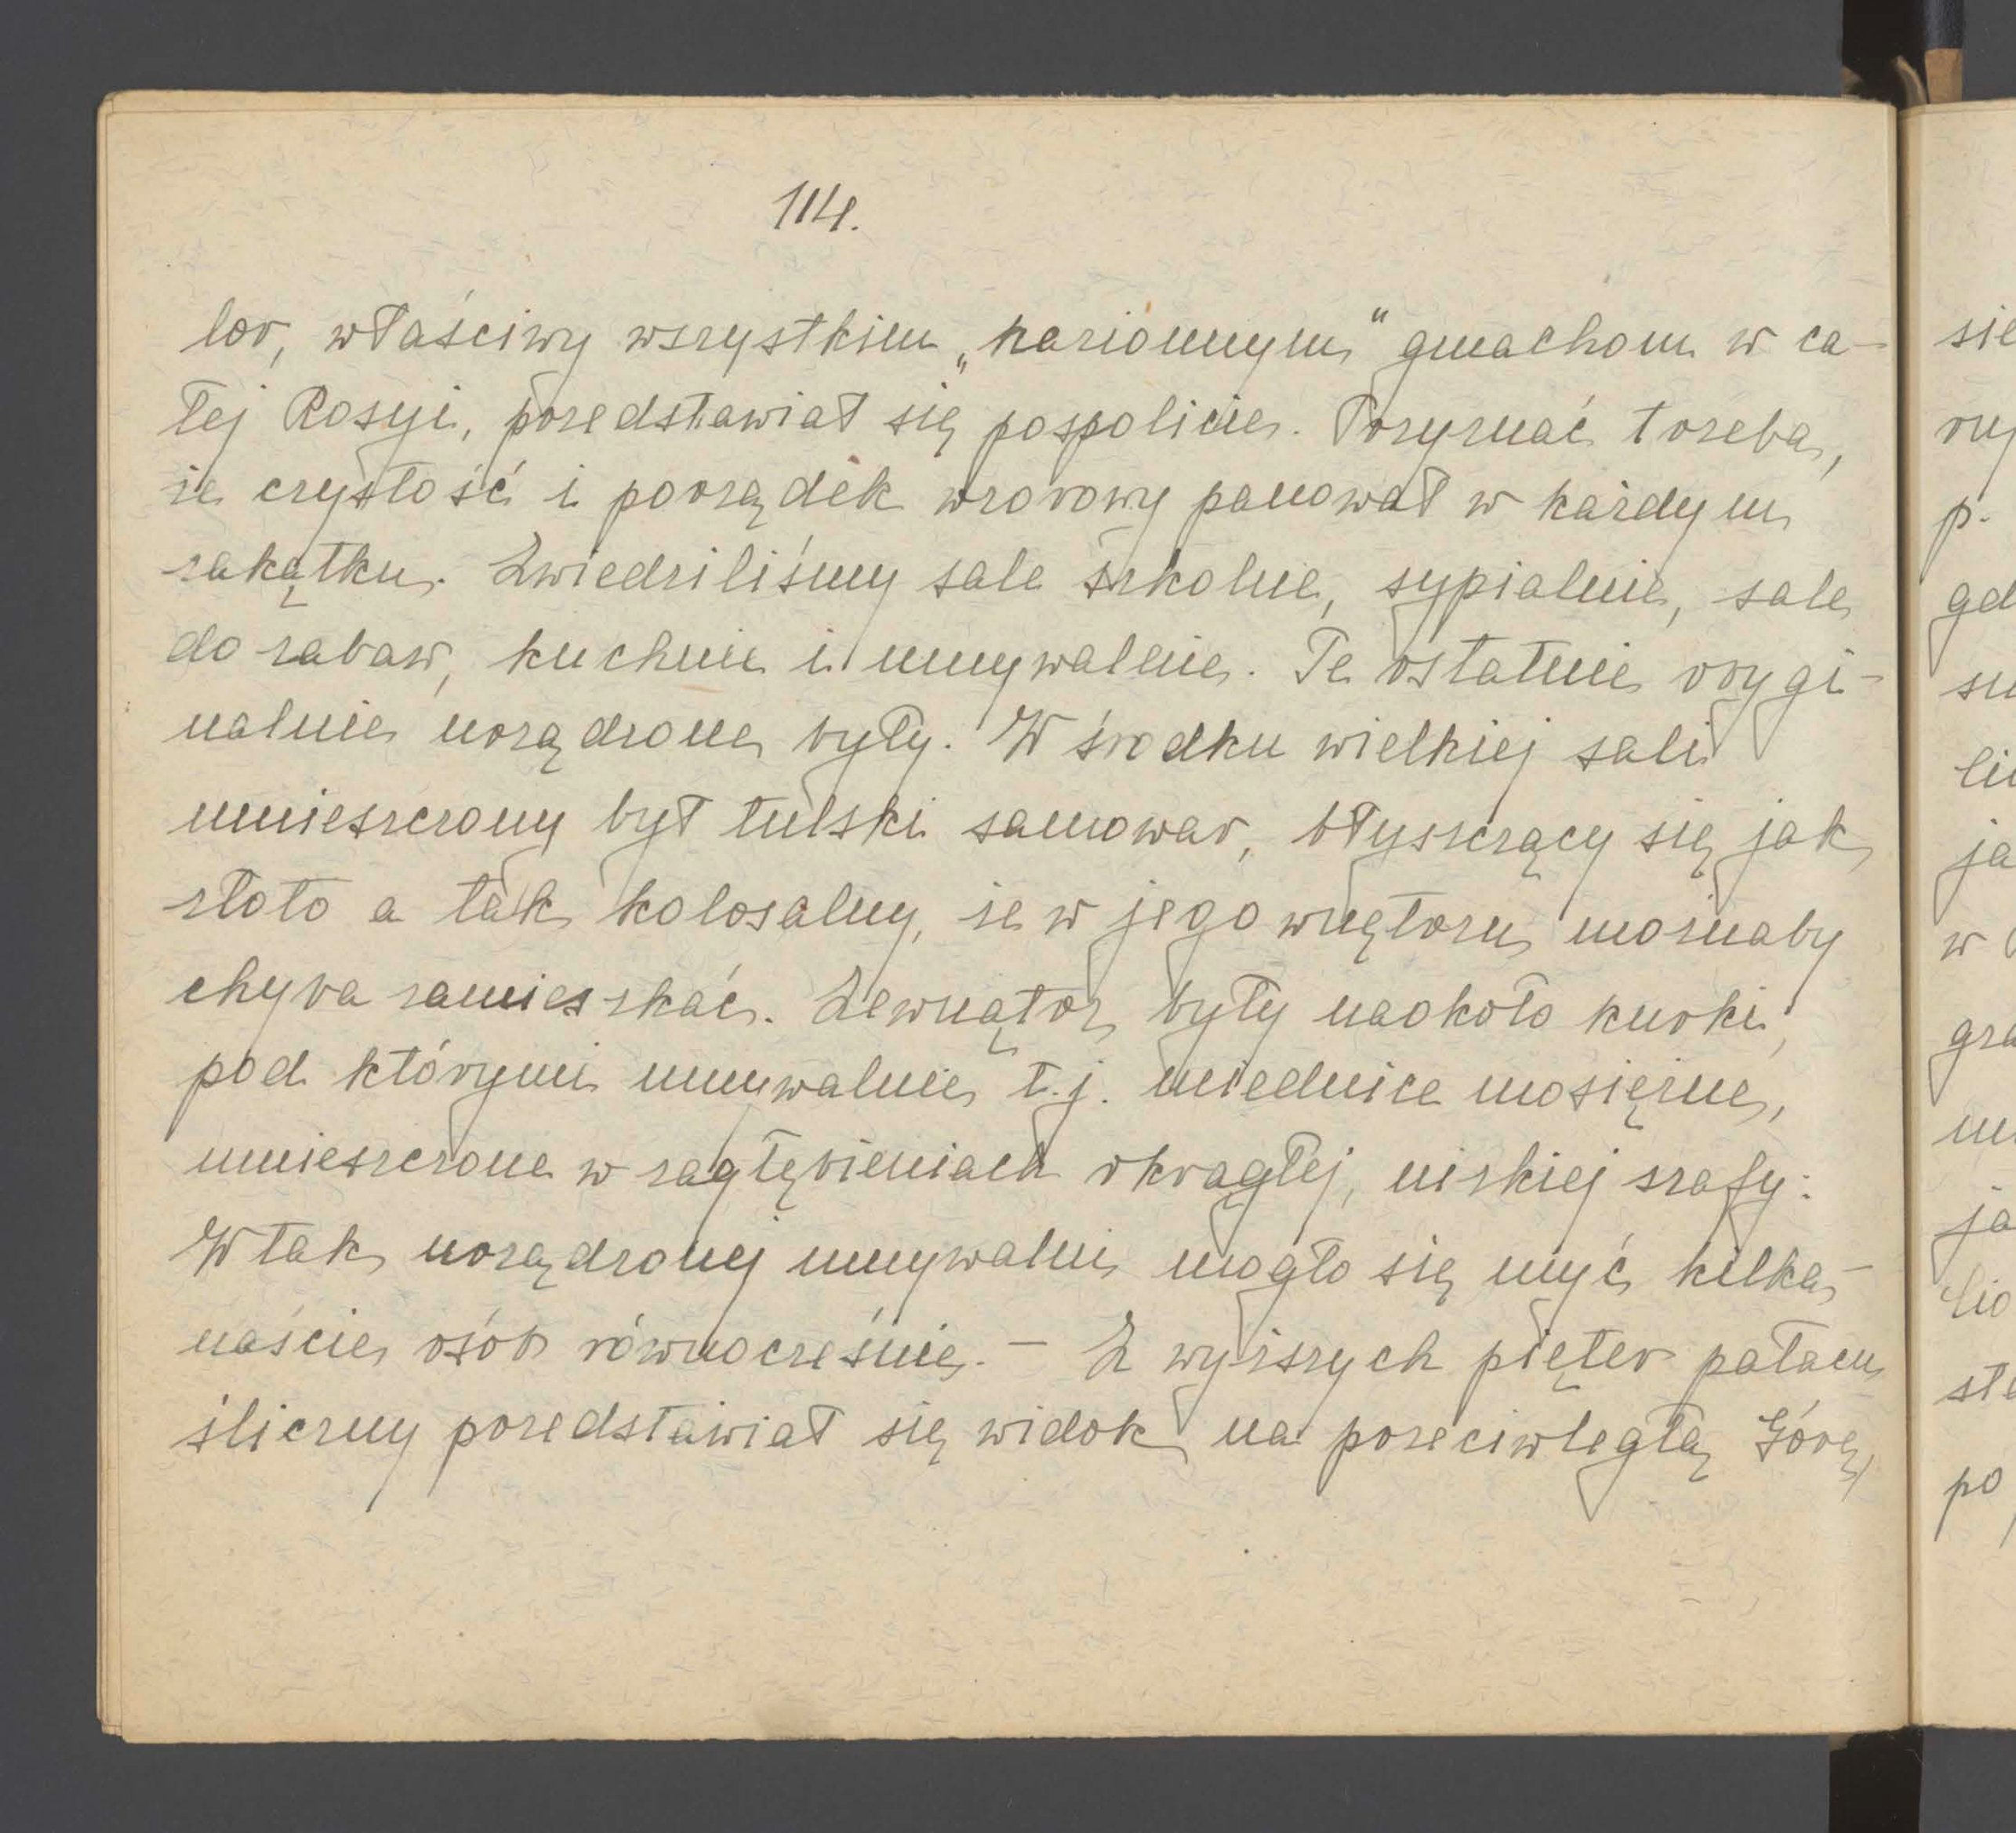 114.
lor, właściwy wszystkim „kazionnym" gmachom w ca-
łej Rosyi, przedstawiał się pospolicie. Przyznać trzeba,
że czystość i porządek wzorowy panował w każdym
zakątku. Zwiedziliśmy sale szkolne, sypialnie, sale
do zabaw, kuchnie i umywalnie. Te ostatnie orygi-
nalnie urządzone były. W środku wielkiej sali
umieszczony był tulski samowar, błyszczący się jak
złoto a tak kolosalny, że w jego wnętrzu możnaby
chyba zamieszkać. Zewnątrz były naokoło kurki,
pod którymi umywalnie, t.j. miednice mosiężne,
umieszczone w zagłębieniach okrągłej, nizkiej szafy.
W tak urządzonej umywalni mogło się myć kilka-
naście osób równocześnie. – Z wyższych pięter pałacu
śliczny przedstawiał się widok na przeciwległą Górę,
sie
ru
p.
gd
ja
w
gra
ja
ste
po